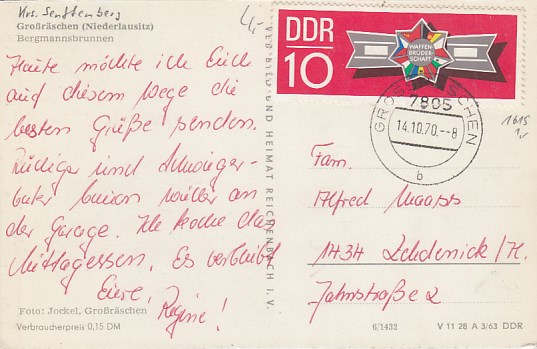 Krs. Senftenberg
Großräschen (Niederlausitz)
Bergmannsbrunnen
4,-
Heute möchte ich Euch
auf diesem Wege die
besten Grüße senden.
Rüdiger und Schwieger-
vater bauen weiter an
der Garage. Ich koche das
Mittagessen. Es verbleibt
Eure, Regine!
Foto: Jockel, Großräschen
Verbraucherpreis 0,15 DM
VEB BILD UND HEIMAT REICHENBACH I. V.
DDR
10
WAFFEN-
BRÜDER-
SCHAFT
7805
14.10.70.-8
b
1615
1,-
Fam.
Alfred Maass
1434 Zehdenick/H.
Jahnstraße 2
6/1432 V 11 28 A 3/63 DDR